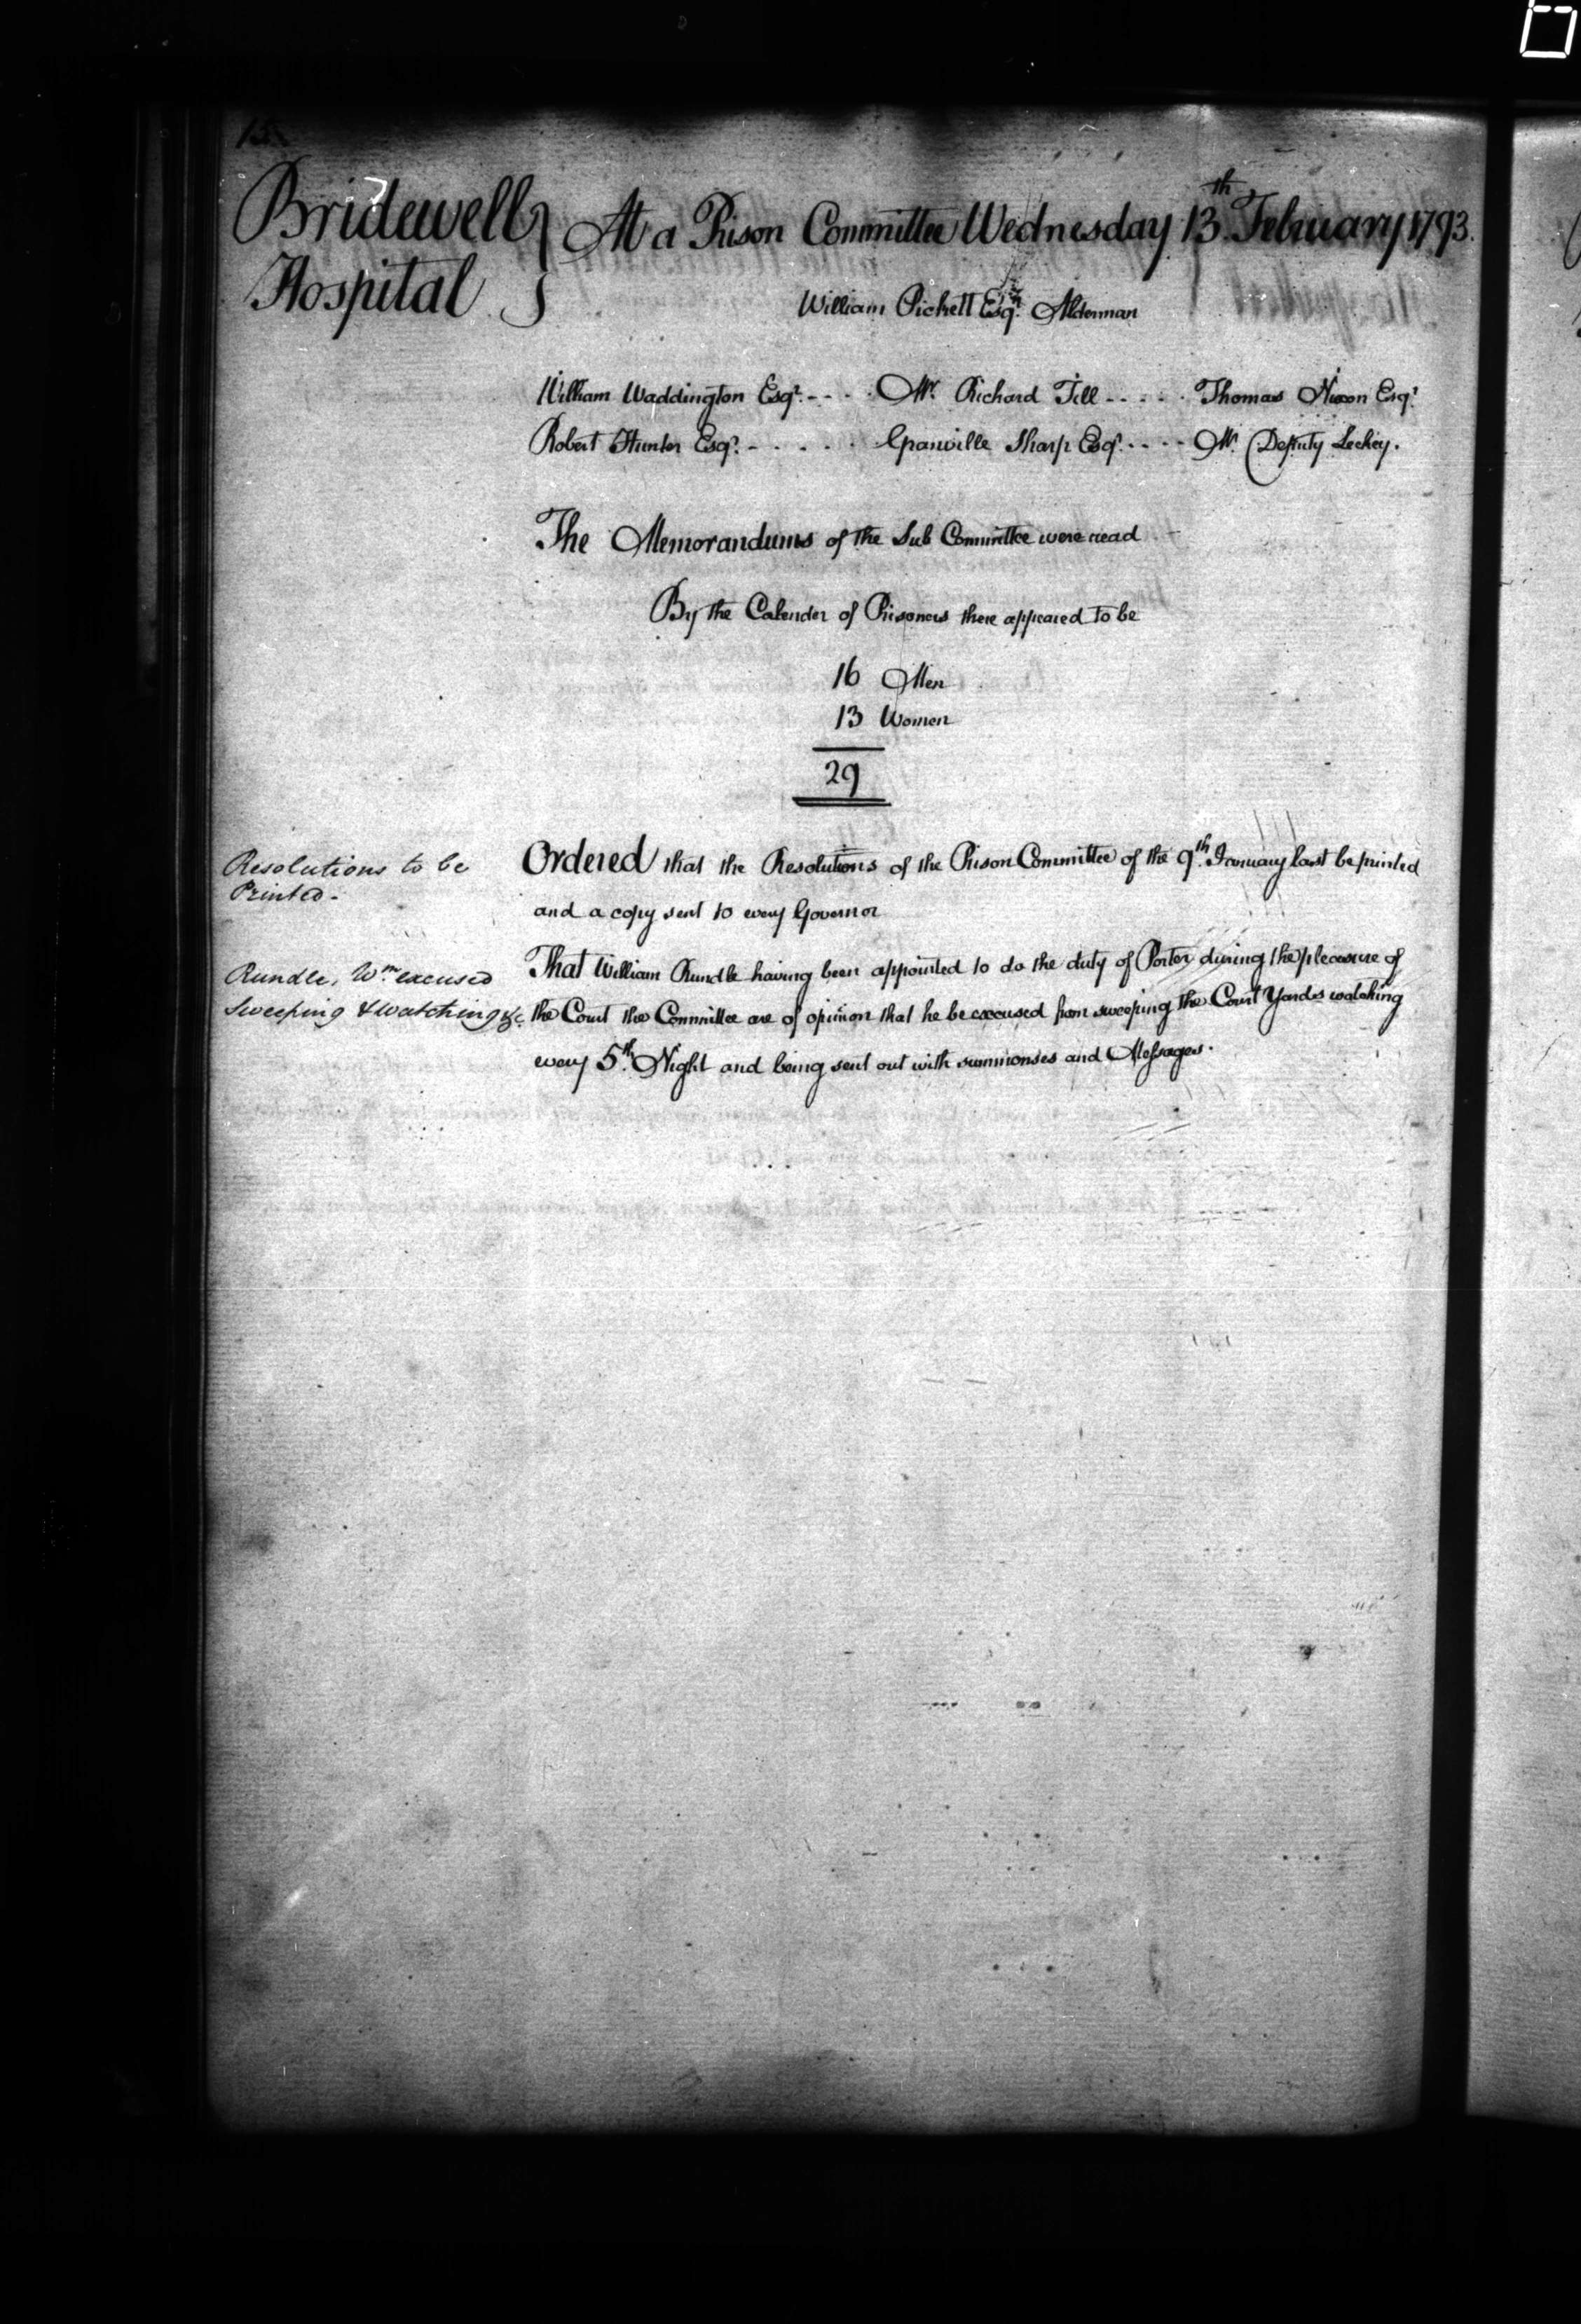 15
Bridewell } At a Prison Committee Wednesday 13th. February 1793.
Hospital
William Pickett Esqr. Alderman
William Waddington Esqr. - - - - Mr. Richard Till - - - - - Thomas Nixon Esqr.
Robert Hunter Esqr. - - - - - Granville Sharp Esqr. - - - - Mr. Deputy Leekey.
The Memorandums of the Sub Committee were read
By the Calender of Prisoners there appeared to be
16 Men
13 Women
29
Resolutions to be
Printed.
Ordered that the Resolutions of the Prison Committee of the 9th. January last be printed
and a copy sent to every Governor
Rundle, Wm. excused
Sweeping & watching &c.
That William Rundle having been appointed to do the duty of Porter during the pleasure of
the Court the Committee are of opinion that he be excused from sweeping the Court Yards watching
every 5th. Night and being sent out with summonses and Messages.